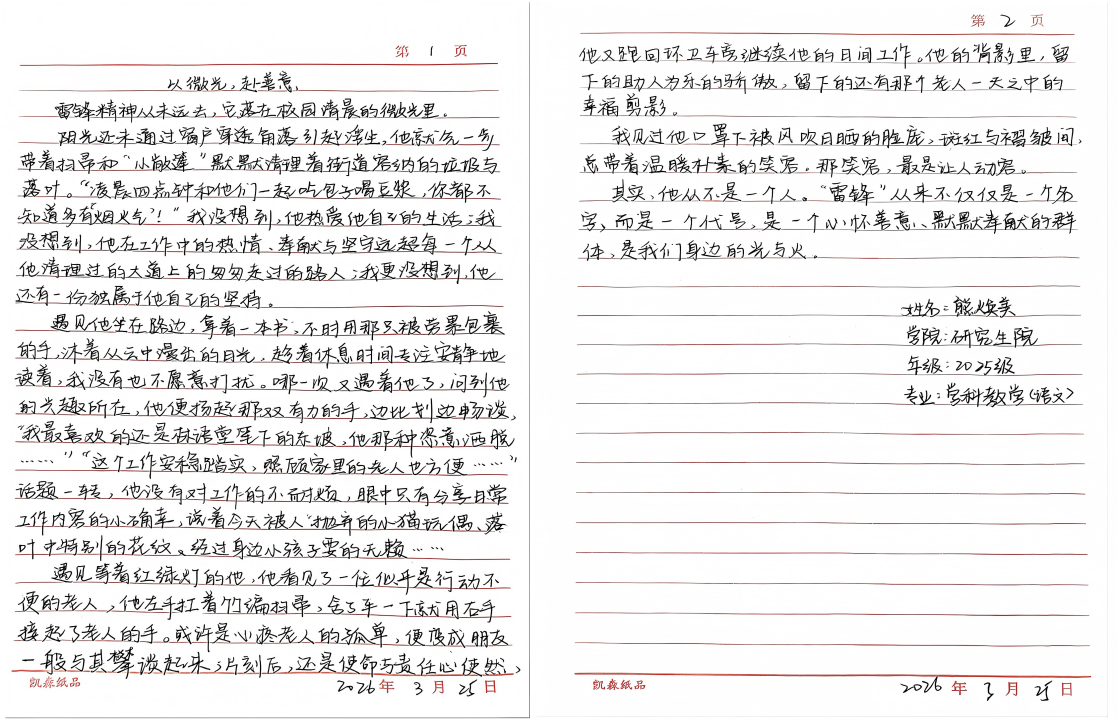 第 1 页
以微光，赴善意
雷锋精神从未远去，它落在校园清晨的微光里。
阳光还未通过窗户穿透角落引起浮尘，他就先一步
带着扫帚和“小敞篷”默默清理着街道容纳的垃圾与
落叶。“凌晨四点钟和他们一起吃包子喝豆浆，你都不
知道多有烟火气！”我没想到，他热爱他自己的生活；我
没想到，他在工作中的热情、奉献与坚守远超每一个从
他清理过的大道上的匆匆走过的路人；我更没想到，他
还有一份独属于他自己的坚持。
遇见他坐在路边，拿着一本书，不时用那只被劳累包裹
的手，沐着从云中漫出的日光，趁着休息时间专注安静地
读着，我没有也不愿意打扰。哪一次又遇着他了，问到他
的兴趣所在，他便扬起那双有力的手，边比划边畅谈，
“我最喜欢的还是林语堂笔下的东坡，他那种恣意洒脱
……”“这个工作安稳踏实，照顾家里的老人也方便……”
话题一转，他没有对工作的不耐烦，眼中只有分享日常
工作内容的小确幸，说着今天被人抛弃的小猫玩偶、落
叶中特别的花纹、经过身边小孩子耍的无赖……
遇见等着红绿灯的他，他看见了一位似乎是行动不
便的老人，他左手扛着竹编扫帚，舍了车一下就用右手
接起了老人的手。或许是心疼老人的孤单，便变成朋友
一般与其攀谈起来；片刻后，还是使命与责任心使然，
凯森纸品
2026 年 3 月 25 日
第 2 页
他又跑回环卫车旁继续他的日间工作。他的背影里，留
下的助人为乐的骄傲，留下的还有那个老人一天之中的
幸福剪影。
我见过他口罩下被风吹日晒的脸庞，斑红与褶皱间，
总带着温暖朴素的笑容。那笑容，最是让人动容。
其实，他从不是一个人。“雷锋”从来不仅仅是一个名
字，而是一个代号，是一个心怀善意、默默奉献的群
体，是我们身边的光与火。
姓名：熊焕美
学院：研究生院
年级：2025级
专业：学科教学（语文）
凯森纸品
2026 年 3 月 25 日